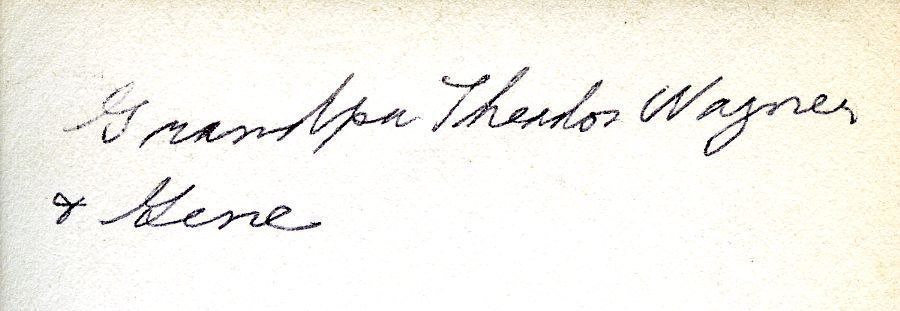 Grandpa Theodor Wagner
& Gene